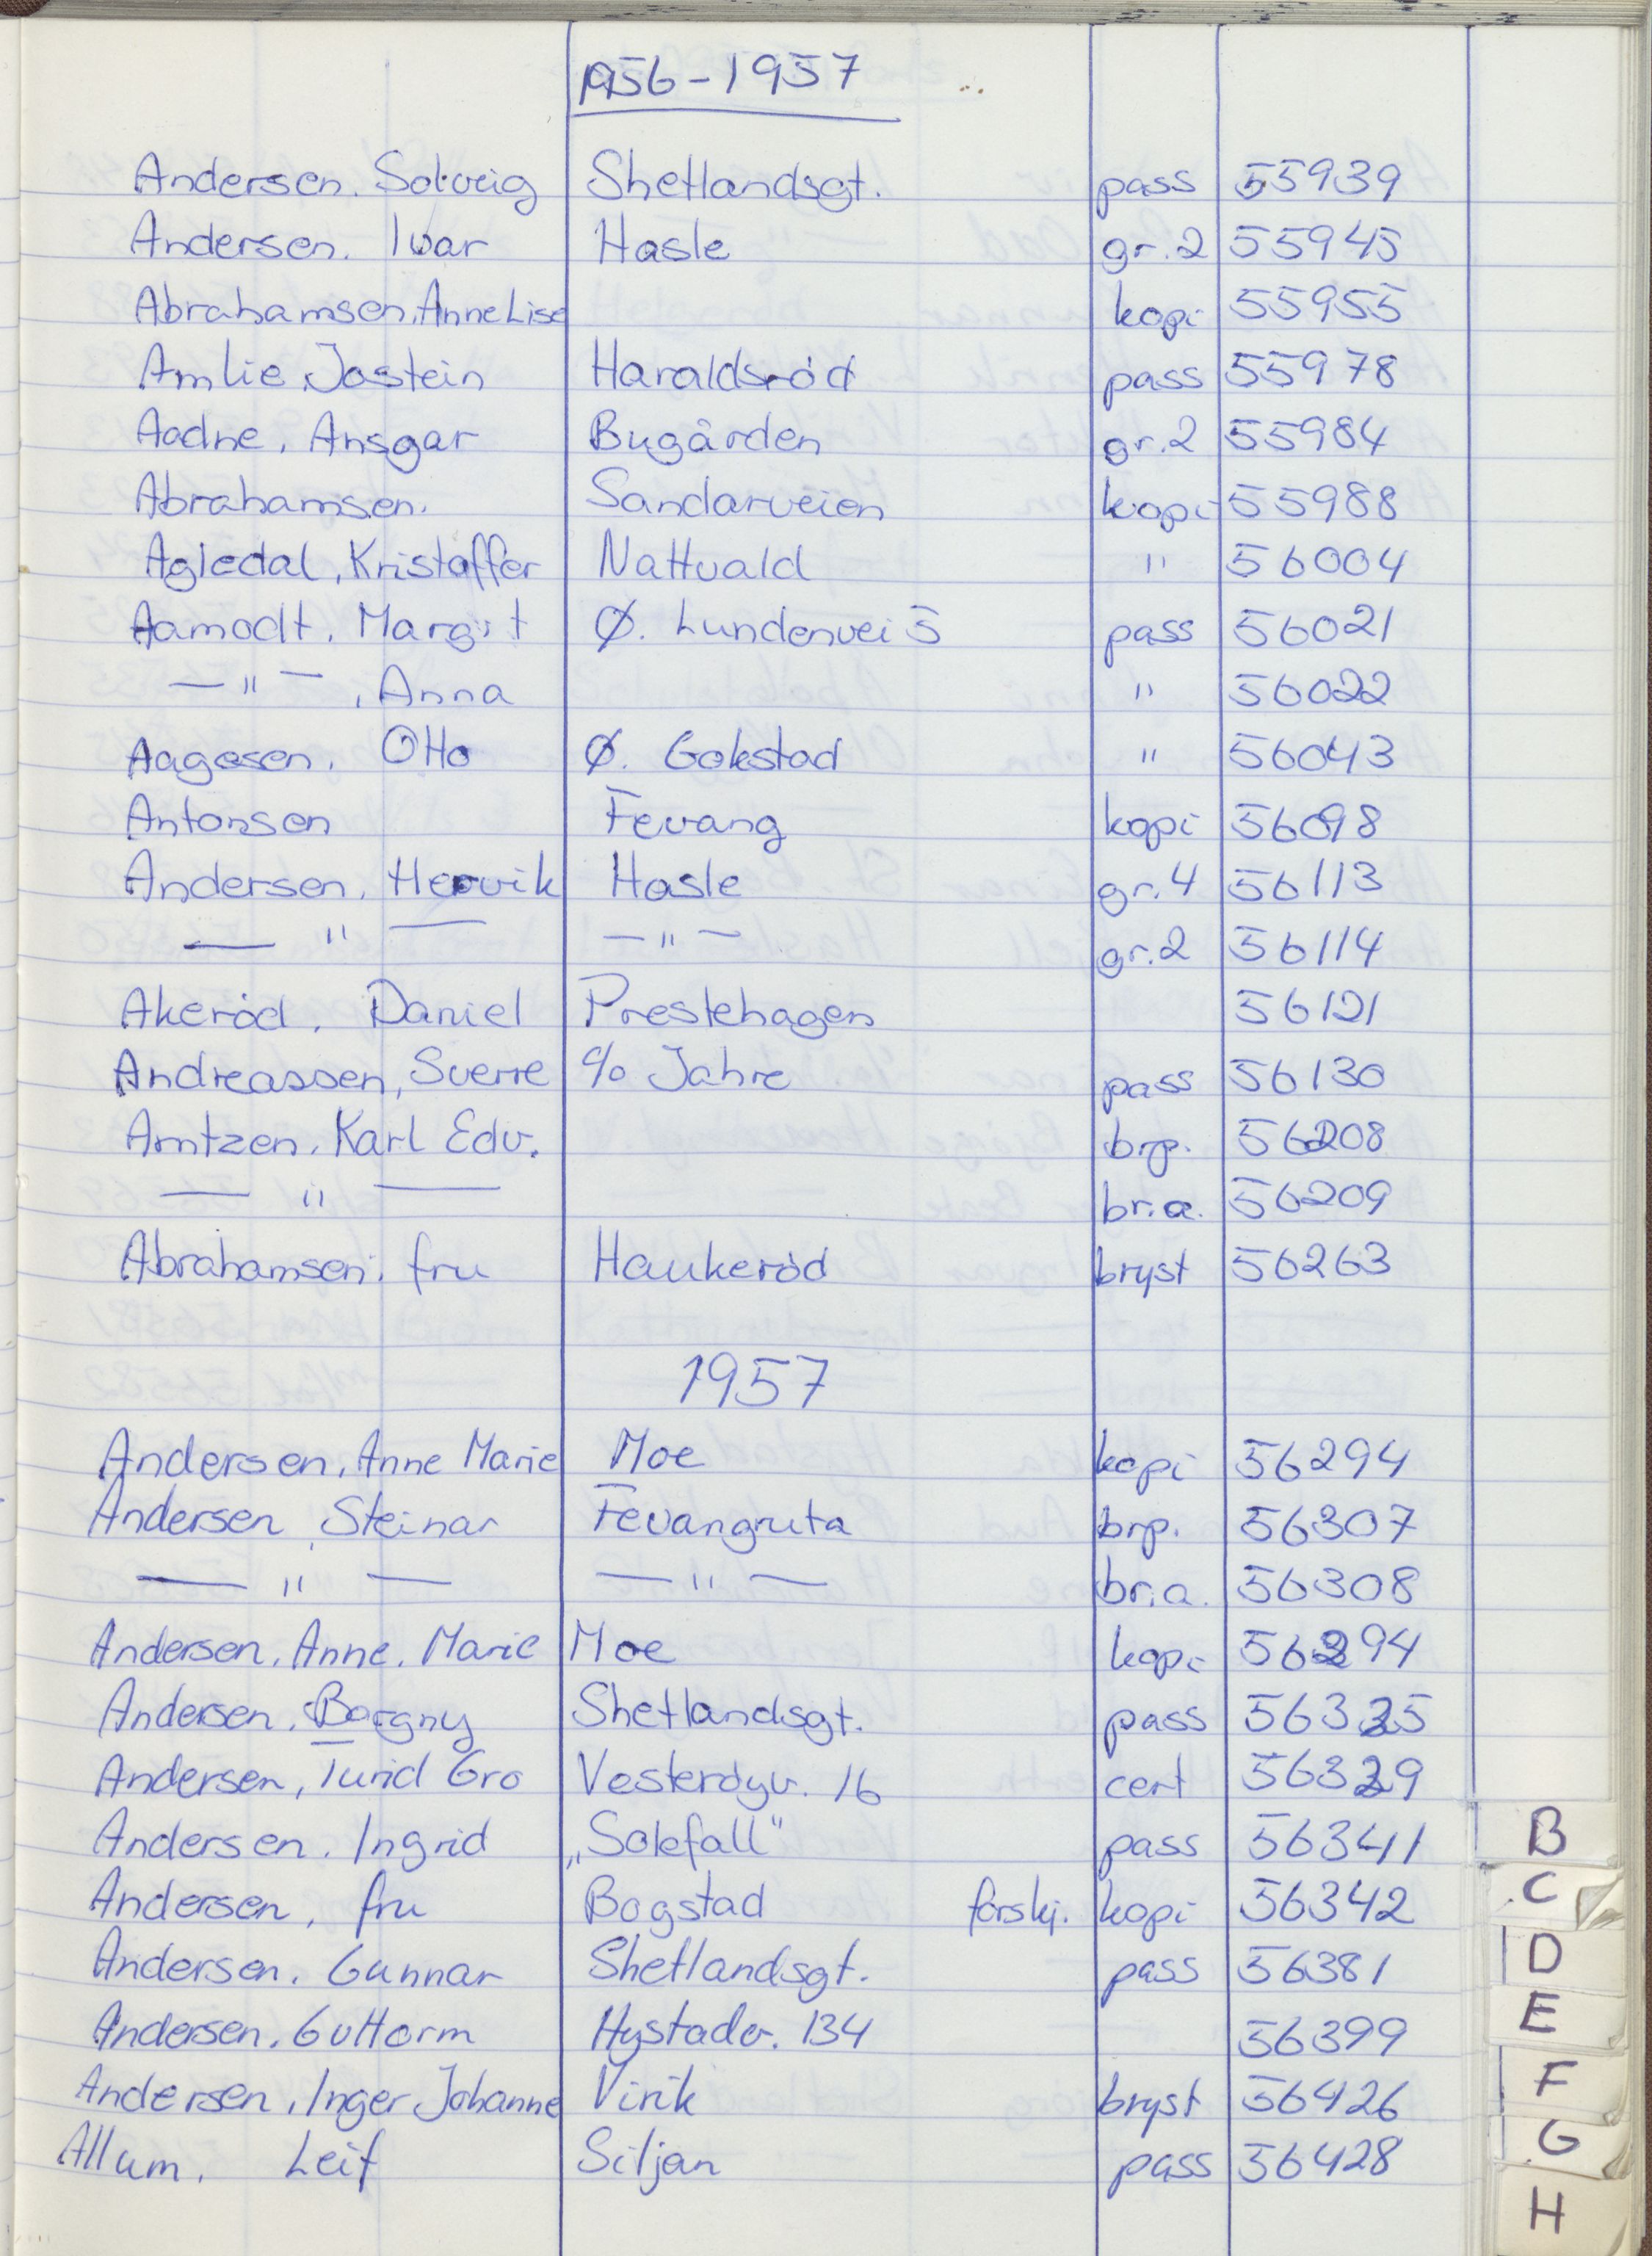 1956-1957
Andersen. Solveig Shetlandsgt. pass 55939
Andersen. Ivar Hasle gr.2 55945
Abrahamsen, Anne Lise kopi 55955
Amlie, Jostein Haraldsröd pass 55978
Aadne, Ansgar Bugården gr.2 55984
Abrahamsen. Sandarveien kopi 55988
Agledal, Kristoffer Nattvald " 56004
Aamodt, Margit Ø. Lundenvei 5 pass 56021
— " — , Anna " 56022
Aagesen, Otto Ø. Gokstad " 56043
Antonsen Fevang kopi 56098
Andersen, Hervik Hasle gr.4 56113
— " — — " — gr.2 56114
Akeröd, Daniel Prestehagen 56121
Andreassen, Sverre c/o Jahre pass 56130
Arntzen, Karl Edv. brp. 56208
— " — br.a. 56209
Abrahamsen, fru Haukeröd bryst 56263
1957
Andersen, Anne Marie Moe kopi 56294
Andersen, Steinar Fevangruta brp. 56307
— " — — " — br.a. 56308
Andersen, Anne. Marie Moe kopi 56294
Andersen, Borgny Shetlandsgt. pass 56325
Andersen, Turid Gro Vesterøyv. 16 cert 56329
Andersen, Ingrid „Solefall" pass 56341
Andersen, fru Bogstad forskj. kopi 56342
Andersen, Gunnar Shetlandsgt. pass 56381
Andersen, Guttorm Hystadv. 134 56399
Andersen, Inger Johanne Virik bryst 56426
Allum, Leif Siljan pass 56428
B
C
D
E
F
G
H